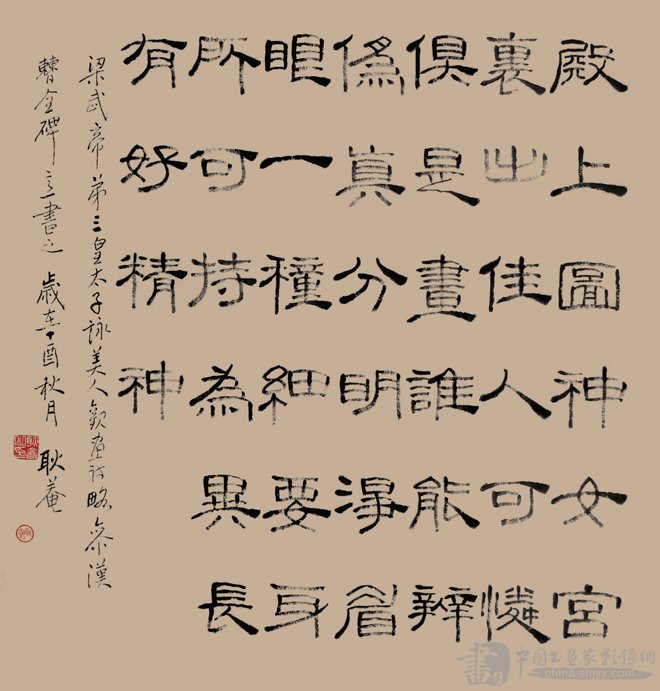 殿上圖神女宮
裏出佳人可憐
俱是畫誰能辨
偽真分明淨眉
眼一種細要身
所可持為異長
有好精神
梁武帝第三皇太子詠美人觀畫詩略參漢
曹全碑意書之 歲在丁酉秋月 耿菴
中國书画家影像網
china-shjyx.com